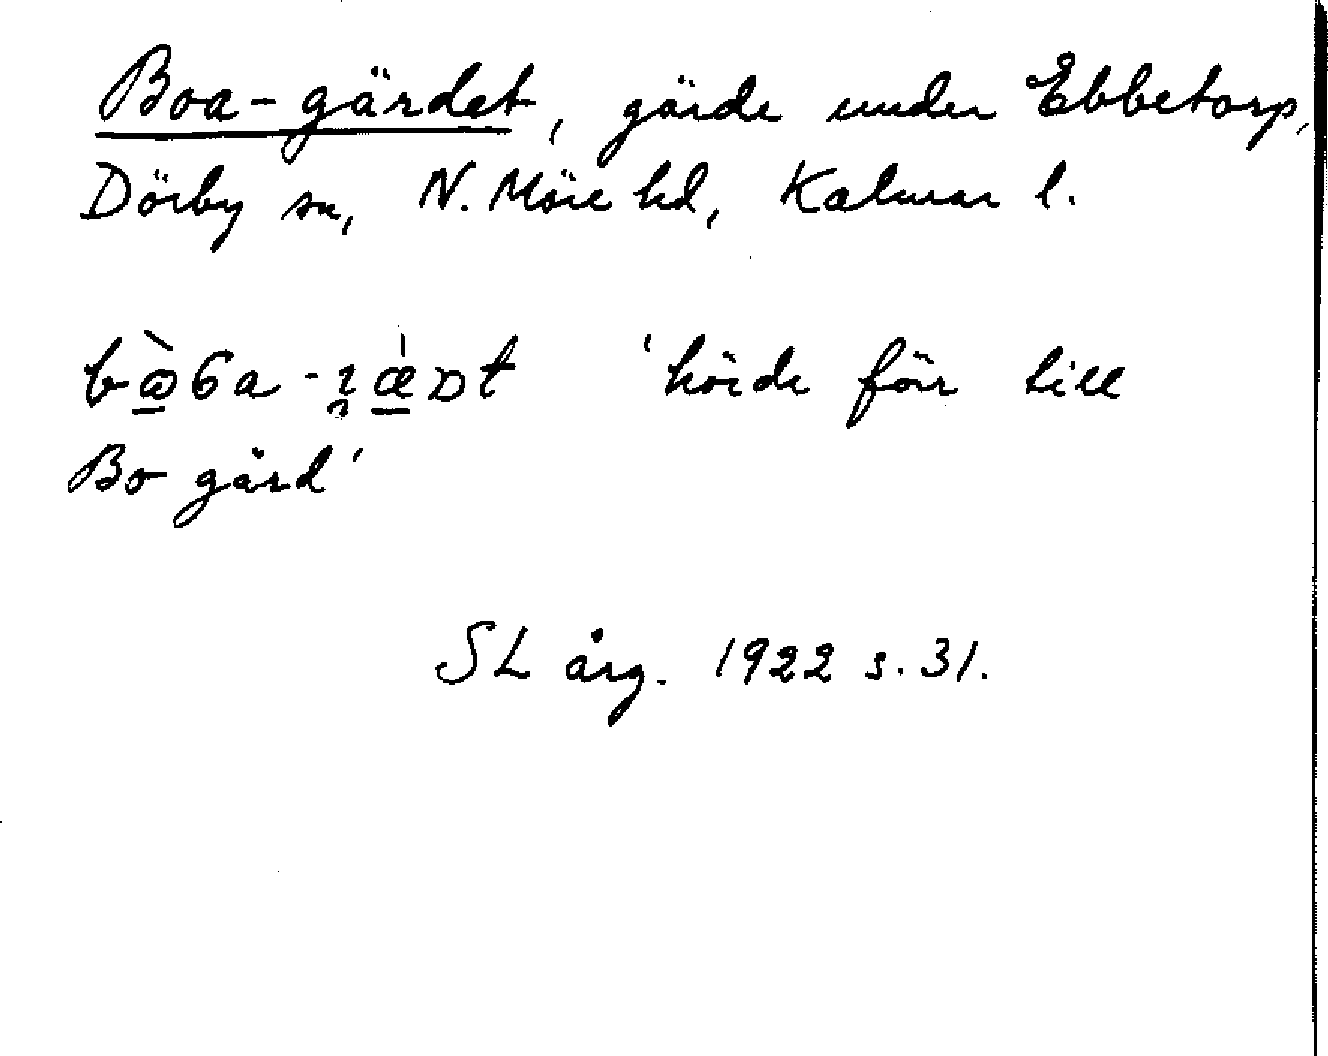 Boa-gärdet, gärde under Ebbetorp,
Dörby sn, N. Möre hd, Kalmar l.
'hörde förr till
Bo gård'
SL årg. 1922 s. 31.